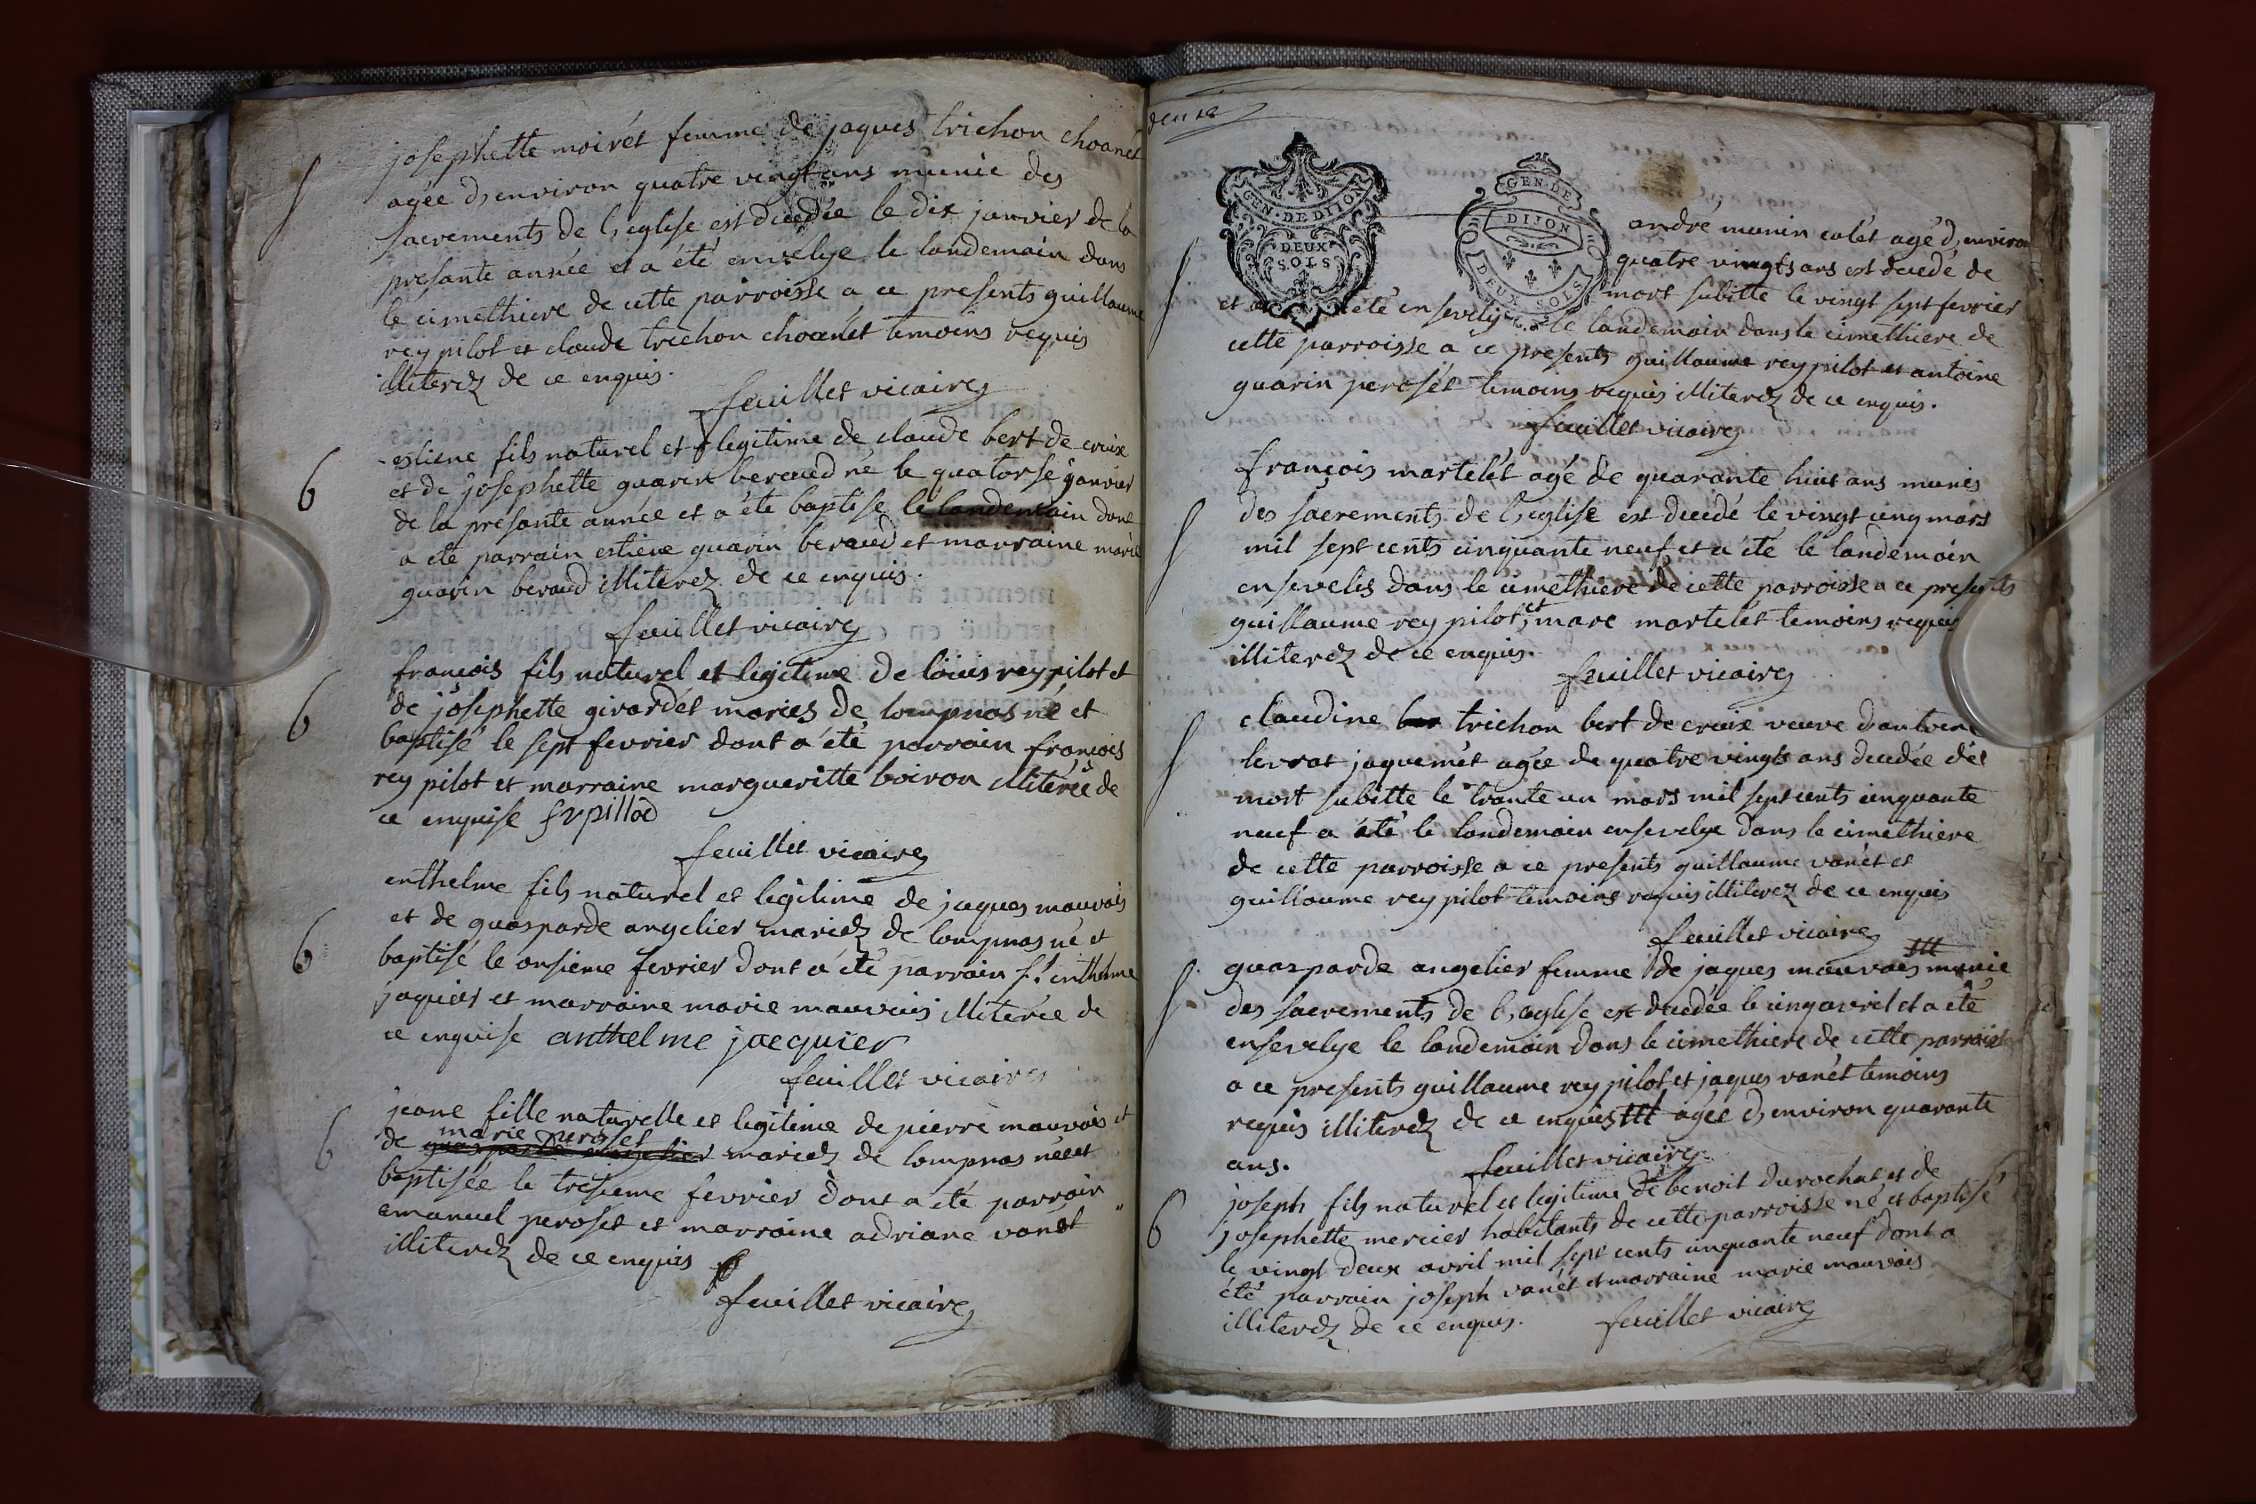 josephette moirét femme de jaques trichon choanét
agée d,environ quatre vingt ans munie des
sacrements de l,eglise est decedée le dix janvier de la
presante année et a été ensevelye le landemain dans
le cimethiere de cette parroisse a ce presents guillaume
rey pilot et claude trichon choanét temoins requis
illiterez de ce enquis.
feuillet vicaire
S
estiene fils naturel et legitime de claude bert de croix
et de josephette guarin beraud né le quatorse janvier
de la presante année et a été baptise le landemain dont
a été parrain estiene guarin beraud et marraine marie
guarin beraud illiterez de ce enquis.
feuillet vicaire
6
francois fils naturel et legitime de loüis rey pilot et
de josephette girardét mariés de lompnas né et
baptisé le sept fevrier dont a été parrain françois
rey pilot et marraine margueritte boiron illiterée de
ce enquise frpillod
feuillet vicaire
6
enthelme fils naturel et legitime de jaques mauvais
et de guasparde angelier mariez de lompnas né et
baptisé le onsieme fevrier dont a été parrain sr. enthelme
jaquier et marraine marie mauvais illiterée de
ce enquise anthelme jacquier
feuillet vicaire
6
jeane fille naturelle et legitime de pierre mauvais et
marie peroset
de guasparde angelier mariez de lompnas née et
baptisée le tresieme fevrier dont a été parrain
emanuel peroset et marraine adriane vanét
illiterez de ce enquis
feuillet vicaire
6
deuxe
GEN·DE DIJON
DEUX
SOLS
GEN·DE
DIJON
DEUX SOLS
andré munin colét agé d,environ
quatre vingts ans est decedé de
mort subitte le vingt sept fevrier
et a été ensevely le landemain dans le cimethiere de
cette parroisse a ce presents guillaume rey pilot et antoine
guarin perosét temoins requis illiterez de ce enquis.
feuillet vicaire
S
françois martelét agé de quarante huit ans munis
des sacrements de l,eglise est decedé le vingt cinq mars
mil sept cents cinquante neuf et a été le landemain
ensevelis dans le cimethiere de cette parroisse a ce presents
guillaume rey pilot, et marc martelét temoins requis
illiterez de ce enquis.
feuillet vicaire
S
claudine ber trichon bert de croix veuve d,antoine
levrat jaquemét agée de quatre vingts ans decedée dés
mort subitte le trante un mars mil sept cents cinquante
neuf a été le landemain ensevelye dans le cimethiere
de cette parroisse a ce presents guillaume vanét et
guillaume rey pilot temoins requis illiterez de ce enquis
feuillet vicaire
S
guasparde angelier femme de jaques mauvais ttt munie
des sacrements de l,eglise est decedée le cinq avril et a été
ensevelye le landemain dans le cimethiere de cette parroisse
a ce presents guillaume rey pilot et jaques vanét temoins
requis illiterez de ce enquis ttt agée d,environ quarante
ans.
feuillet vicaire
S
joseph fils naturel et legitime de benoit durochat et de
josephette mercier habitants de cette parroisse né et baptisé
le vingt deux avril mil sept cents cinquante neuf dont a
été parrain joseph vanét et marraine marie mauvais
illiterez de ce enquis.
feuillet vicaire
6